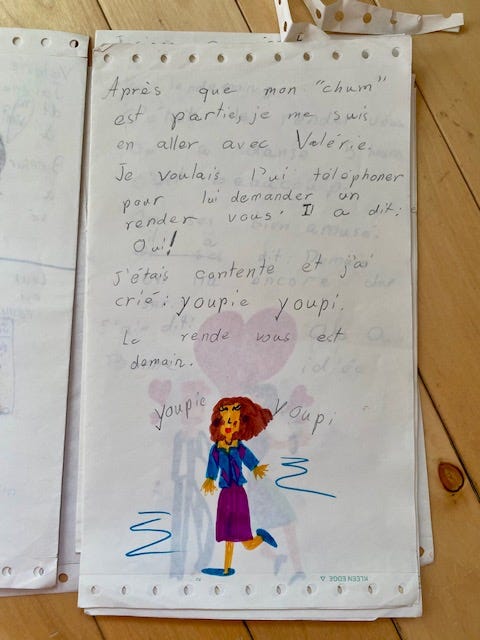 Après que mon "chum"
est partie, je me suis
en aller avec Valérie.
Je voulais l'ui téléphoner
pour lui demander un
render vous. Il a dit:
Oui!
J'étais contente et j'ai
crié: youpie youpi.
Le rende vous est
demain.
youpie youpi
KLEEN EDGE